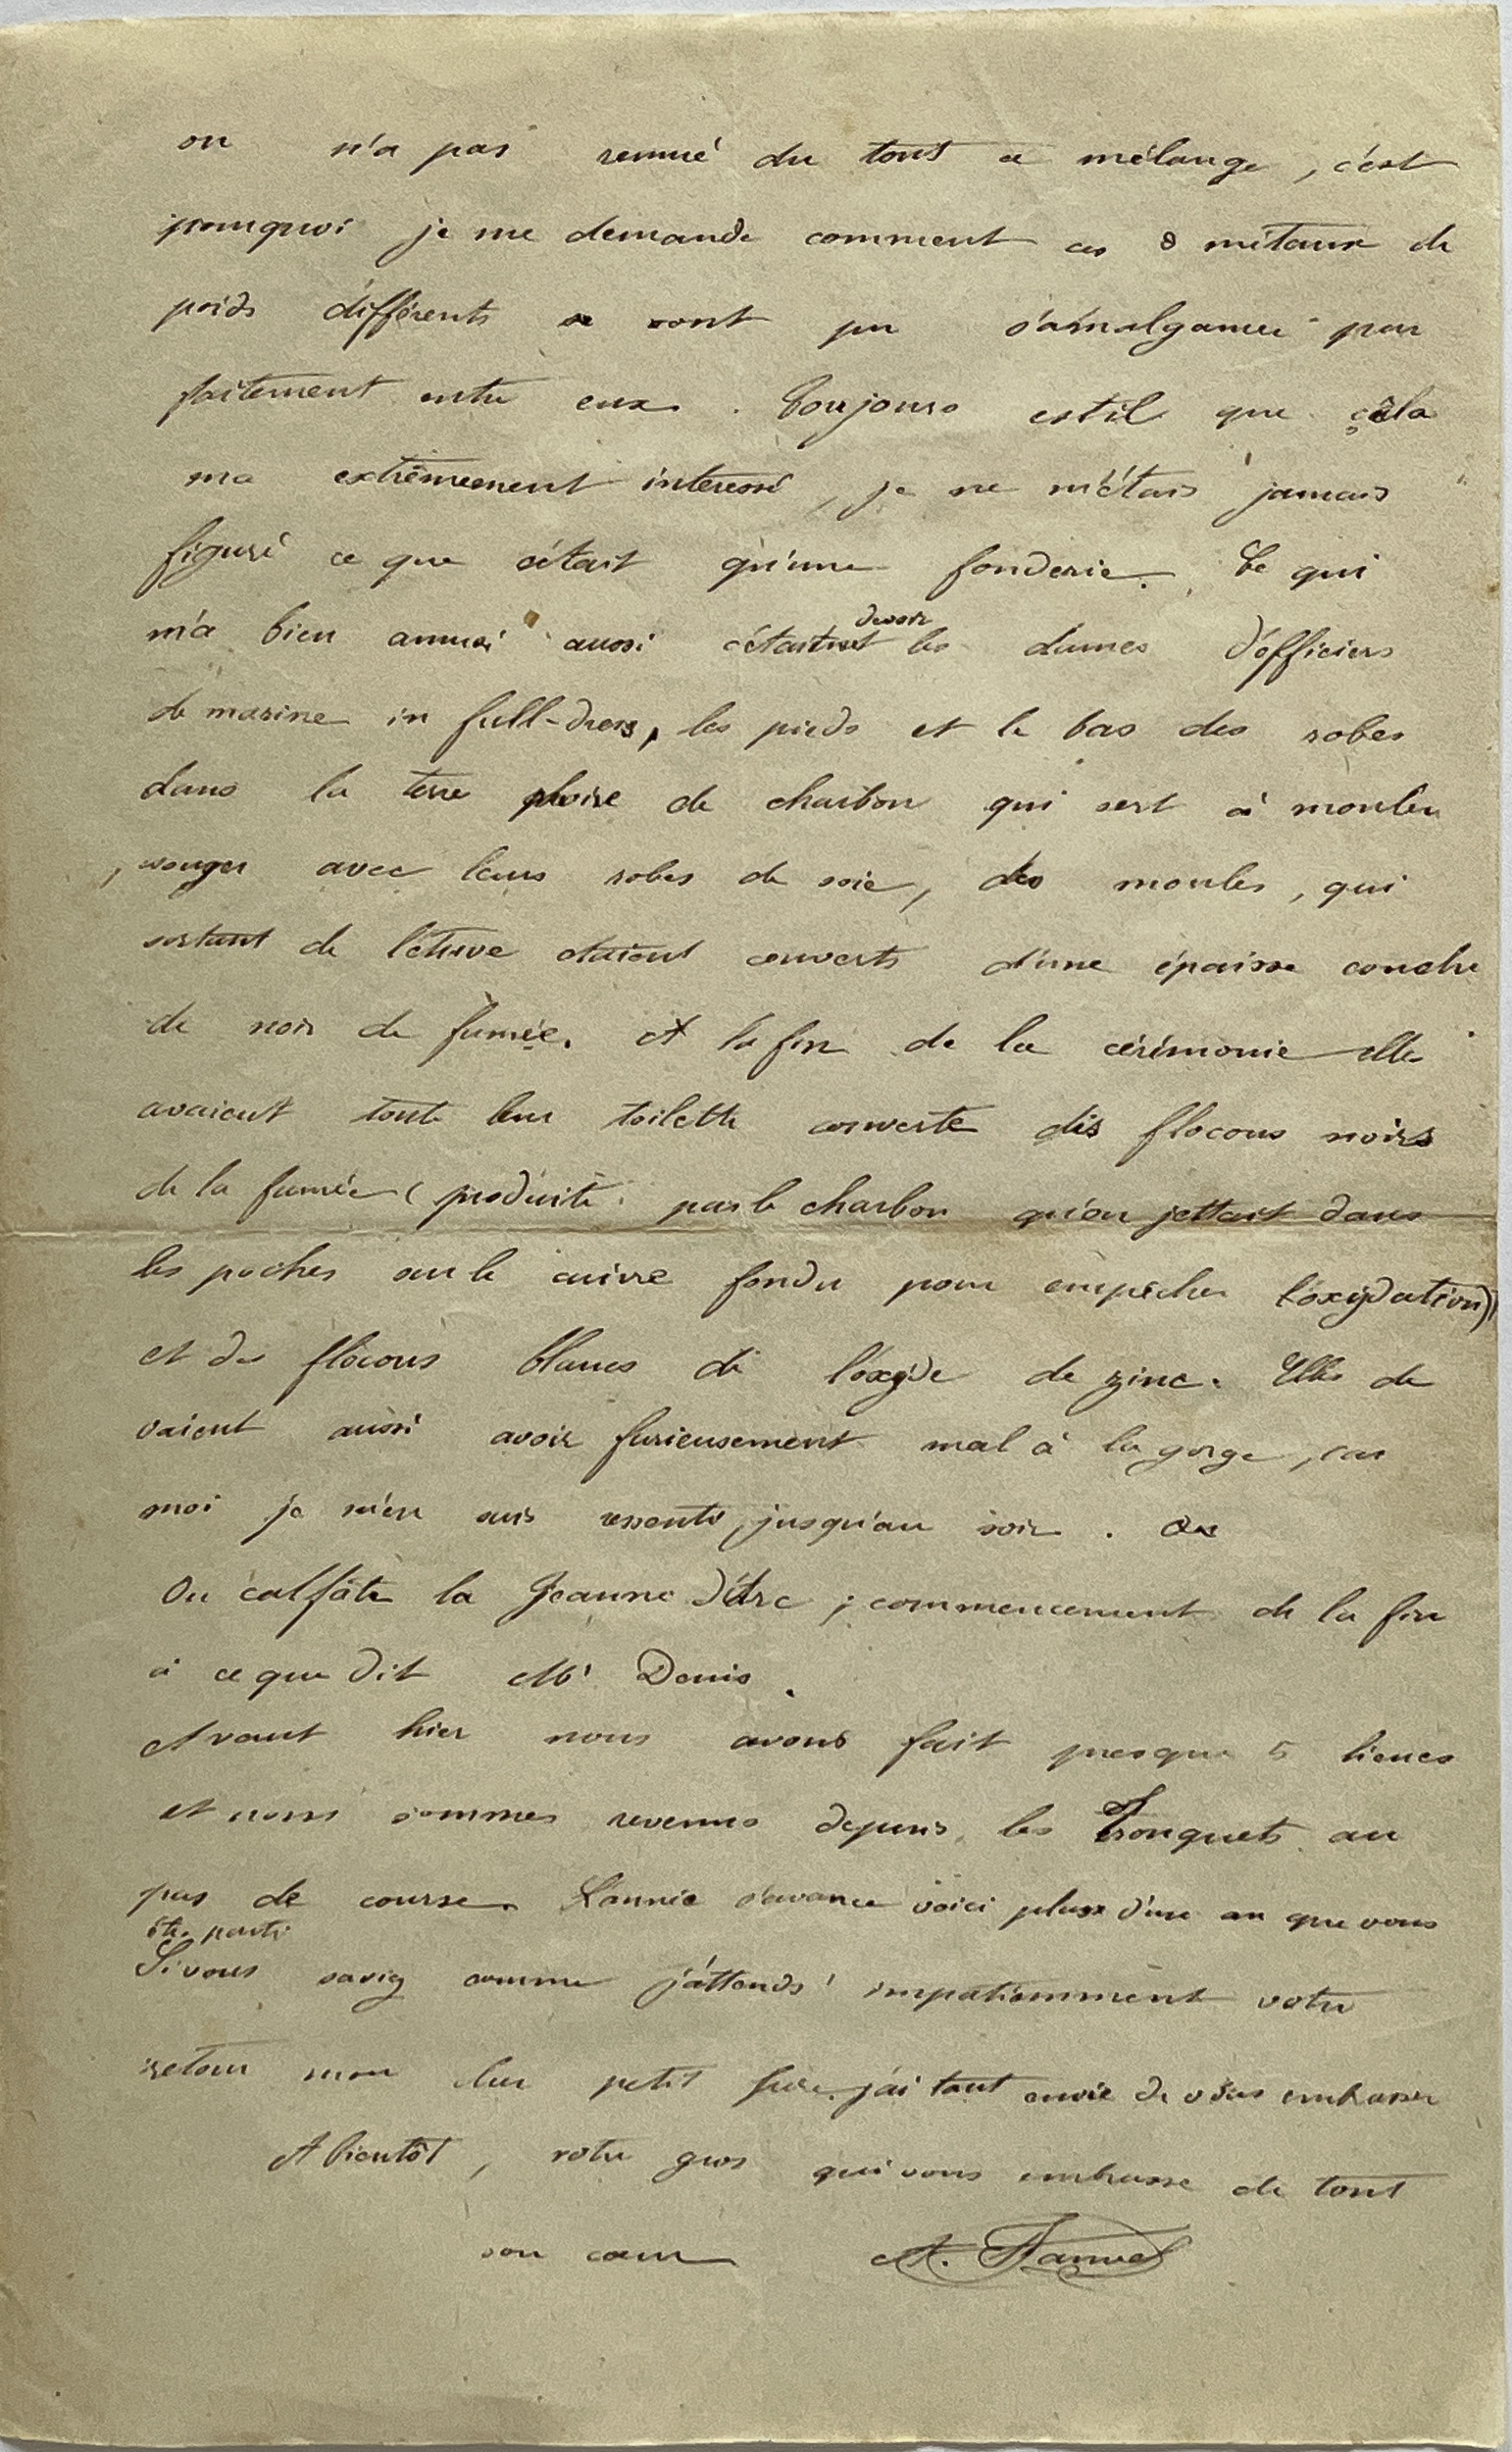 on n'a pas remué du tout ce mélange, c'est
pourquoi je me demande comment ces 8 métaux de
poids différents se sont pu s'amalgamer par
faitement entre eux. Toujours est il que cela
m'a extrêmement interessé, je ne m'étais jamais
figuré ce que c'était qu'une fonderie. Ce qui
m'a bien amusé aussi c'était de voir les dames d'officiers
de marine in full-dress, les pieds et le bas des robes
dans la terre noire de charbon qui sert à mouler
, avec leurs robes de soie, des moules, qui
sortant de l'étuve étaient couverts d'une épaisse couche
de noir de fumée. A la fin de la cérémonie elles
avaient toute leur toilette couverte des flocons noirs
de la fumée (produite par le charbon qu'on jettait dans
les poches sur le cuivre fondu pour empêcher l'oxydation)
et des flocons blancs de l'oxyde de zinc. Elles de
vaient aussi avoir furieusement mal à la gorge, car
moi je m'en suis ressenti jusqu'au soir.
On calfate la Jeanne d'Arc ; commencement de la fin
à ce que dit Mr Denis.
Avant hier nous avons fait presque 5 lieues
et nous sommes revenus depuis les Fronquets au
pas de course. L'année s'avance voici plus d'un an que vous
êtes parti
Si vous saviez comme j'attends impatiemment votre
retour mon cher petit père, j'ai tant envie de vous embrasser
A bientôt, votre gros qui vous embrasse de tout
son cœur A.